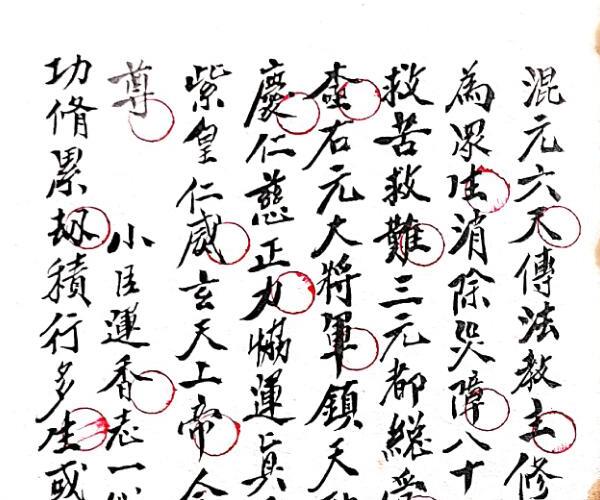 混元六天傳法教主修
為眾生消除災障八十
救苦救難三元都縂
左右元大將軍鎮天
慶仁慈正力悑運真
紫皇仁威玄天上帝金
尊
小臣運香志一
功脩累劫積行多生或